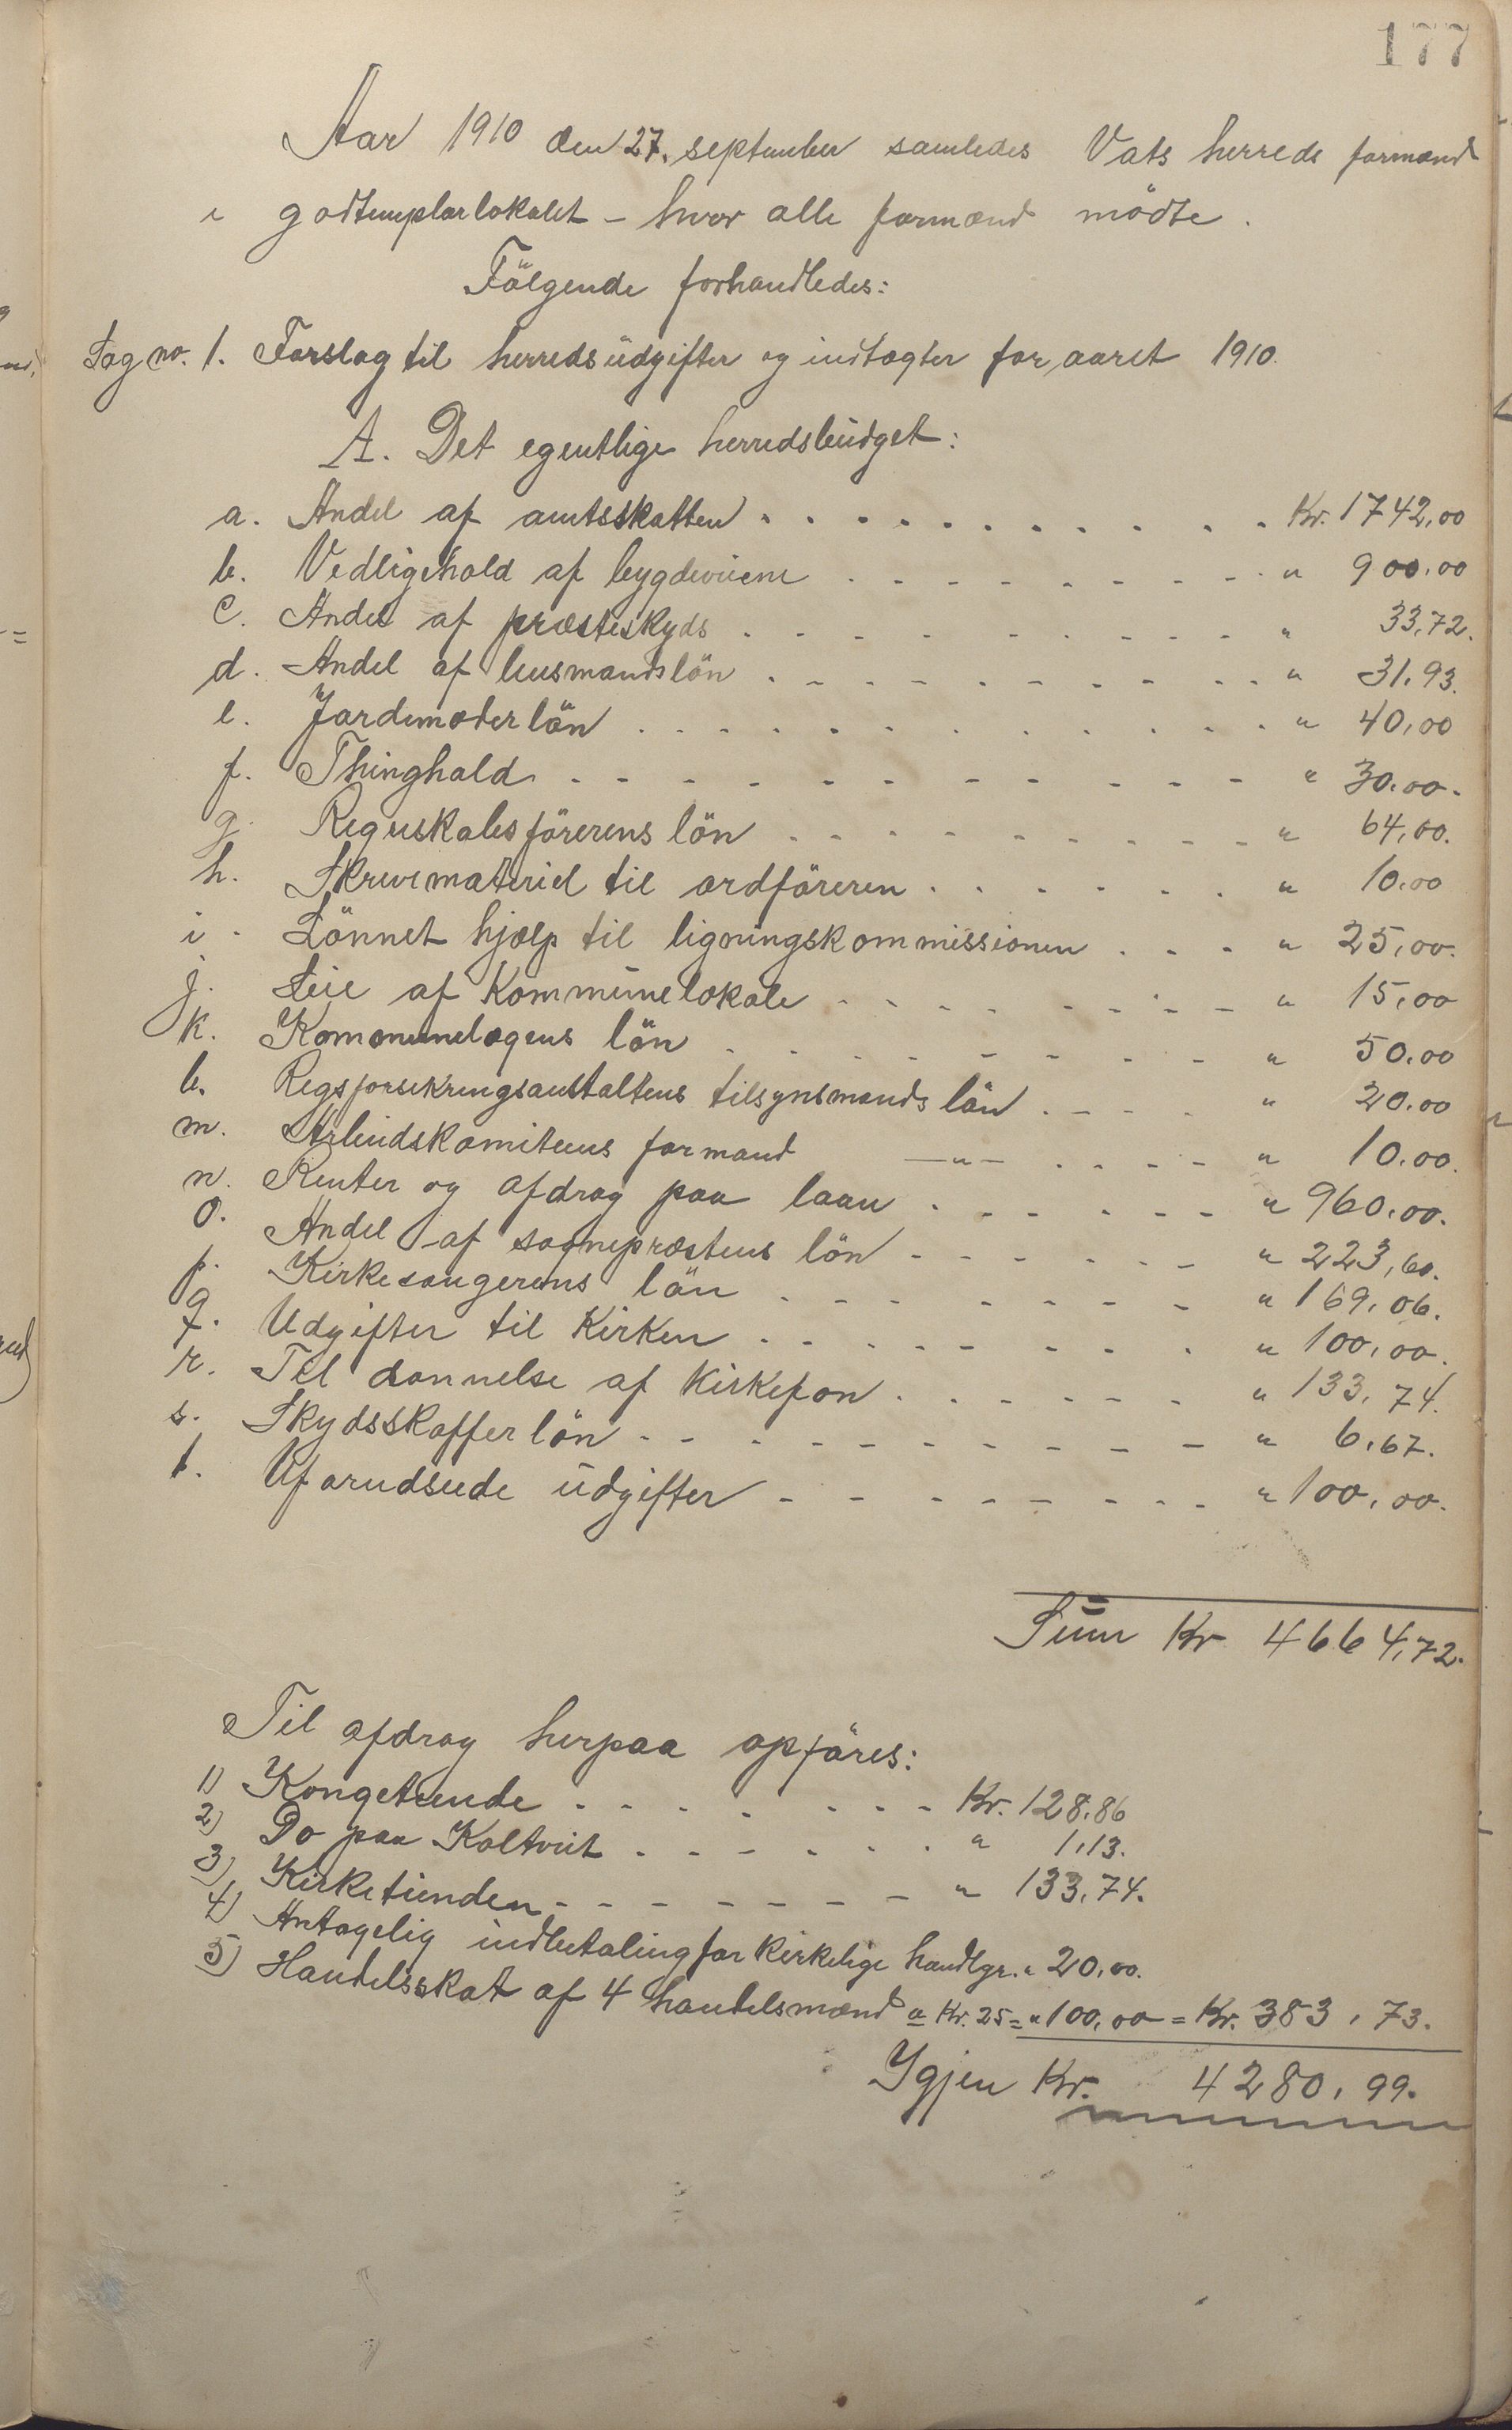 177
Aar 1910 den 27. september samledes Vats herreds formænd
i godtemplarlokalet - hvor alle formænd mödte.
Fölgende forhandledes:
Sag no. 1. Forslag til herredsudgifter og indtægter for aaret 1910.
A. Det egentlige herredsbudget:
a. Andel af amtsskatten . . . . . . . . . . Kr. 1742,00
b. Vedligehold af bygdeveiene . - - - - - - - . " 900.00
c. Andel af præsteskyds . - - - - - - - - - " 33,72.
d. Andel af lensmandslön . - - - - - - - . . " 31,93.
e. Jordemoderlön . . . . . . . . . . . . " 40,00
f. Thinghold . - - - - - - - - - - - " 30.00.
g. Regnskabsförerens lön . . - - - - - - - " 64,00.
h. Skrivemateriel til ordföreren . . . . . . " 10.00
i. Lönnet hjælp til ligningskommissionen . . . " 25,00.
j. Leie af Kommunelokale . - - - - - - - " 15,00
k. Kommunelægens lön . . . . - - - - - " 50.00
l. Rigsforsikringsanstaltens tilsynsmands lön . - - . " 20.00
m. Arbeidskomiteens formand —"— . . - - - " 10.00.
n. Renter og afdrag paa laan . - - - - - - " 960.00.
o. Andel af sognepræstens lön - - - - - - - " 223,60.
p. Kirkesangerens lön . - - - - - - - " 169,06.
q. Udgifter til Kirken . . . . - - - . " 100,00.
r. Til dannelse af Kirkefon . . . . - - - " 133,74.
s. Skydsskafferlön . - - - - - - - - - " 6,67.
t. Uforudseede udgifter - - - - - - - . . " 100,00.
Sum Kr 4664,72.
Til afdrag herpaa opföres:
1) Kongetiende . - - - - - - - Kr. 128,86
2) Do paa Koltveit . - - - . . . " 1,13.
3) Kirketienden - - - - - - - - " 133,74.
4) Antagelig indbetaling for kirkelige handlgr. " 20,00.
5) Handelsskat af 4 handelsmænd a Kr. 25 = " 100,00 = Kr. 383,73.
Ygjen Kr. 4280,99.